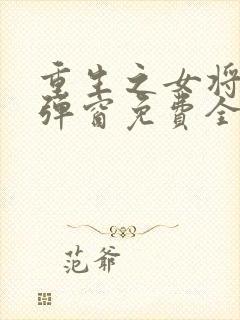 重生之女将
弹窗免費全
范爷